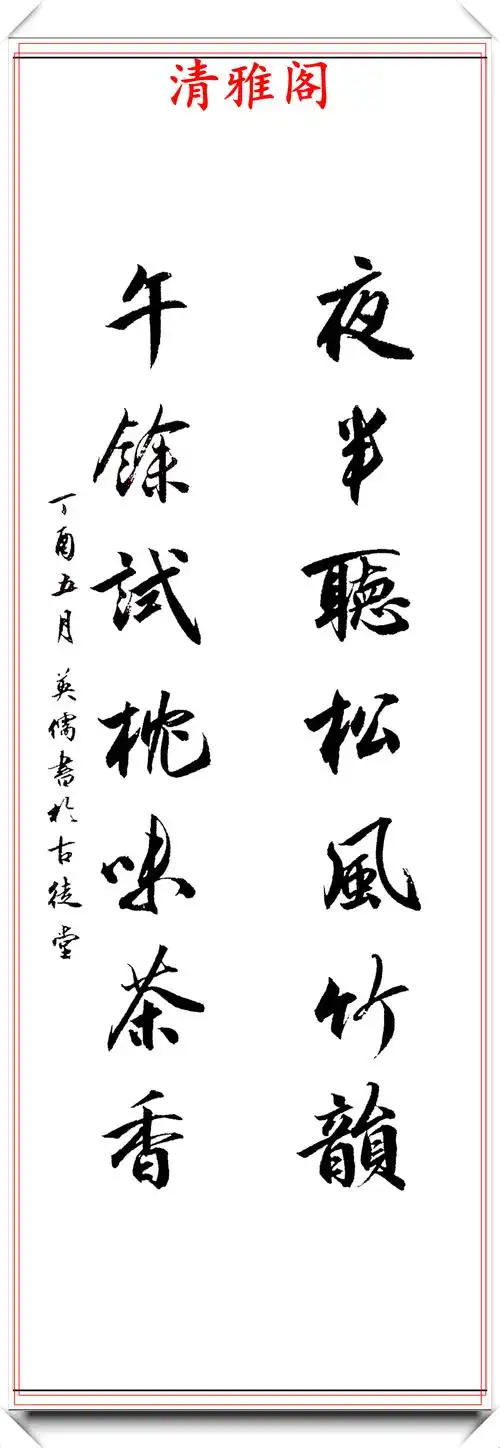 清雅阁
夜半聽松風竹韻
午餘試枕味茶香
丁酉五月 英儒書於古徒堂